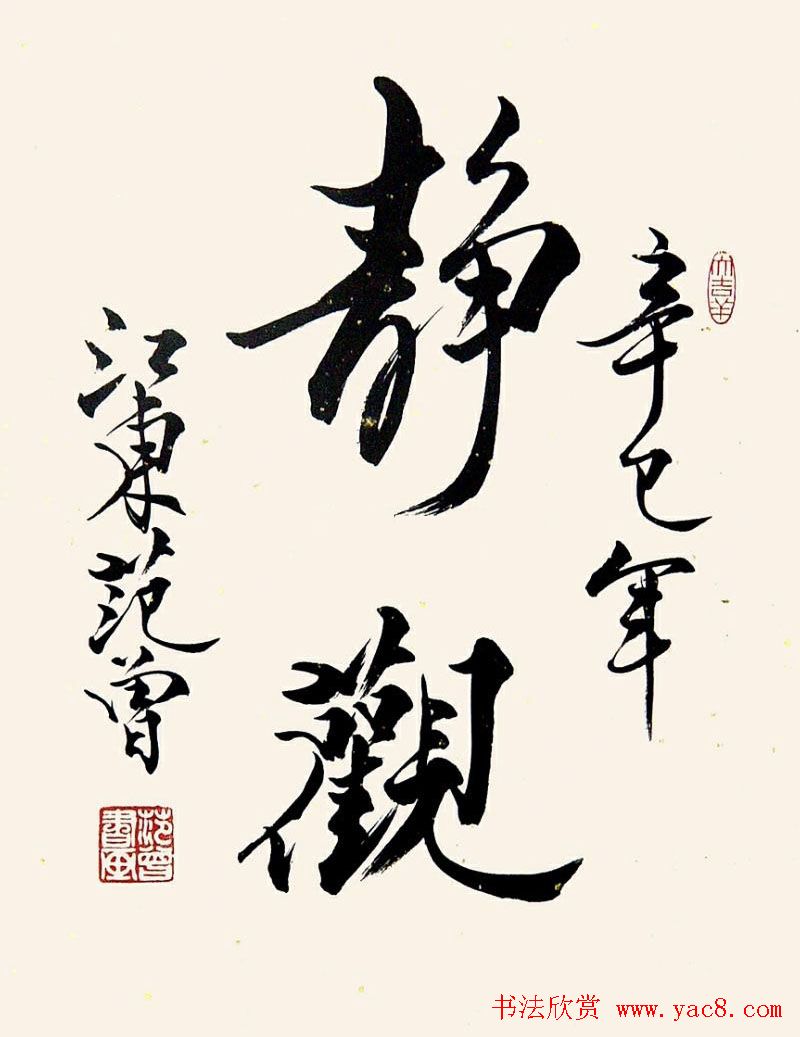 辛巳年
静觀
江東范曾
大吉羊
范曾書画
书法欣赏 www.yac8.com